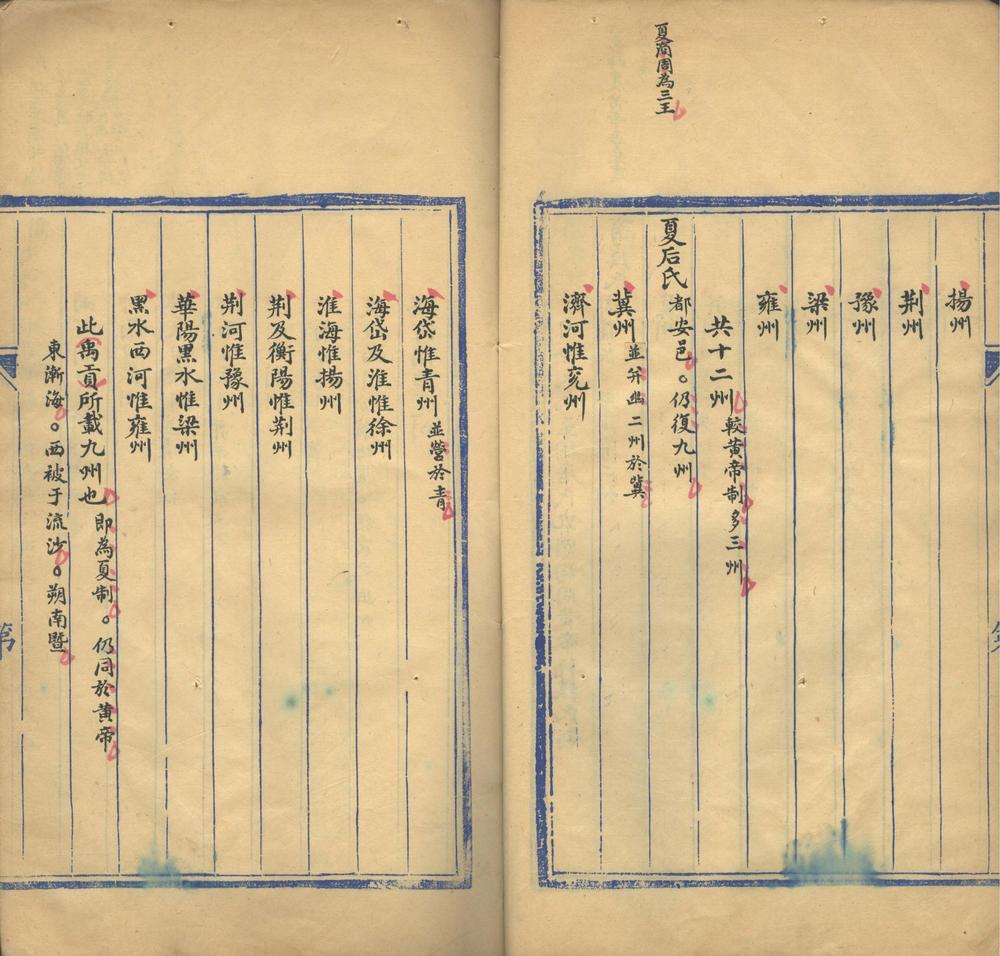 夏商周為三王
揚州
荆州
豫州
梁州
雍州
共十二州 較黄帝制多三州
夏后氏 都安邑。仍復九州
冀州 並并幽二州於冀
濟河惟兖州
海岱惟青州 並營於青
海岱及淮惟徐州
淮海惟揚州
荆及衡陽惟荆州
荆河惟豫州
華陽黒水惟梁州
黒水西河惟雍州
此禹貢所載九州也 即為夏制。仍同於黄帝
東漸海。西被于流沙。朔南暨
第